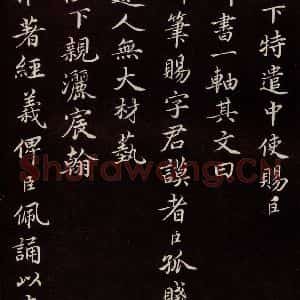 下特遣中使賜臣
書一軸其文曰
筆賜字君謨者臣孤賤
遠人無大材藝
下親灑宸翰
著經義俾臣佩誦以
Shufawang.CN